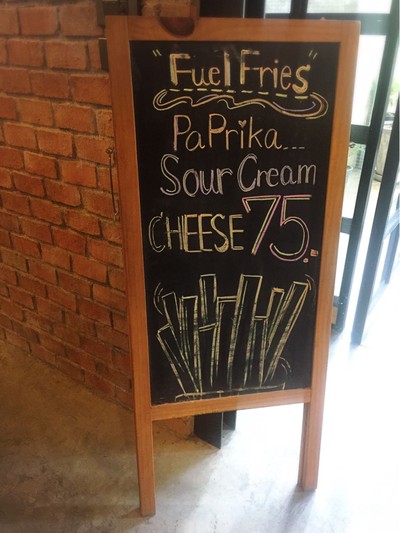 "Fuel Fries"
PaPrika...
Sour Cream
CHEESE 75.-